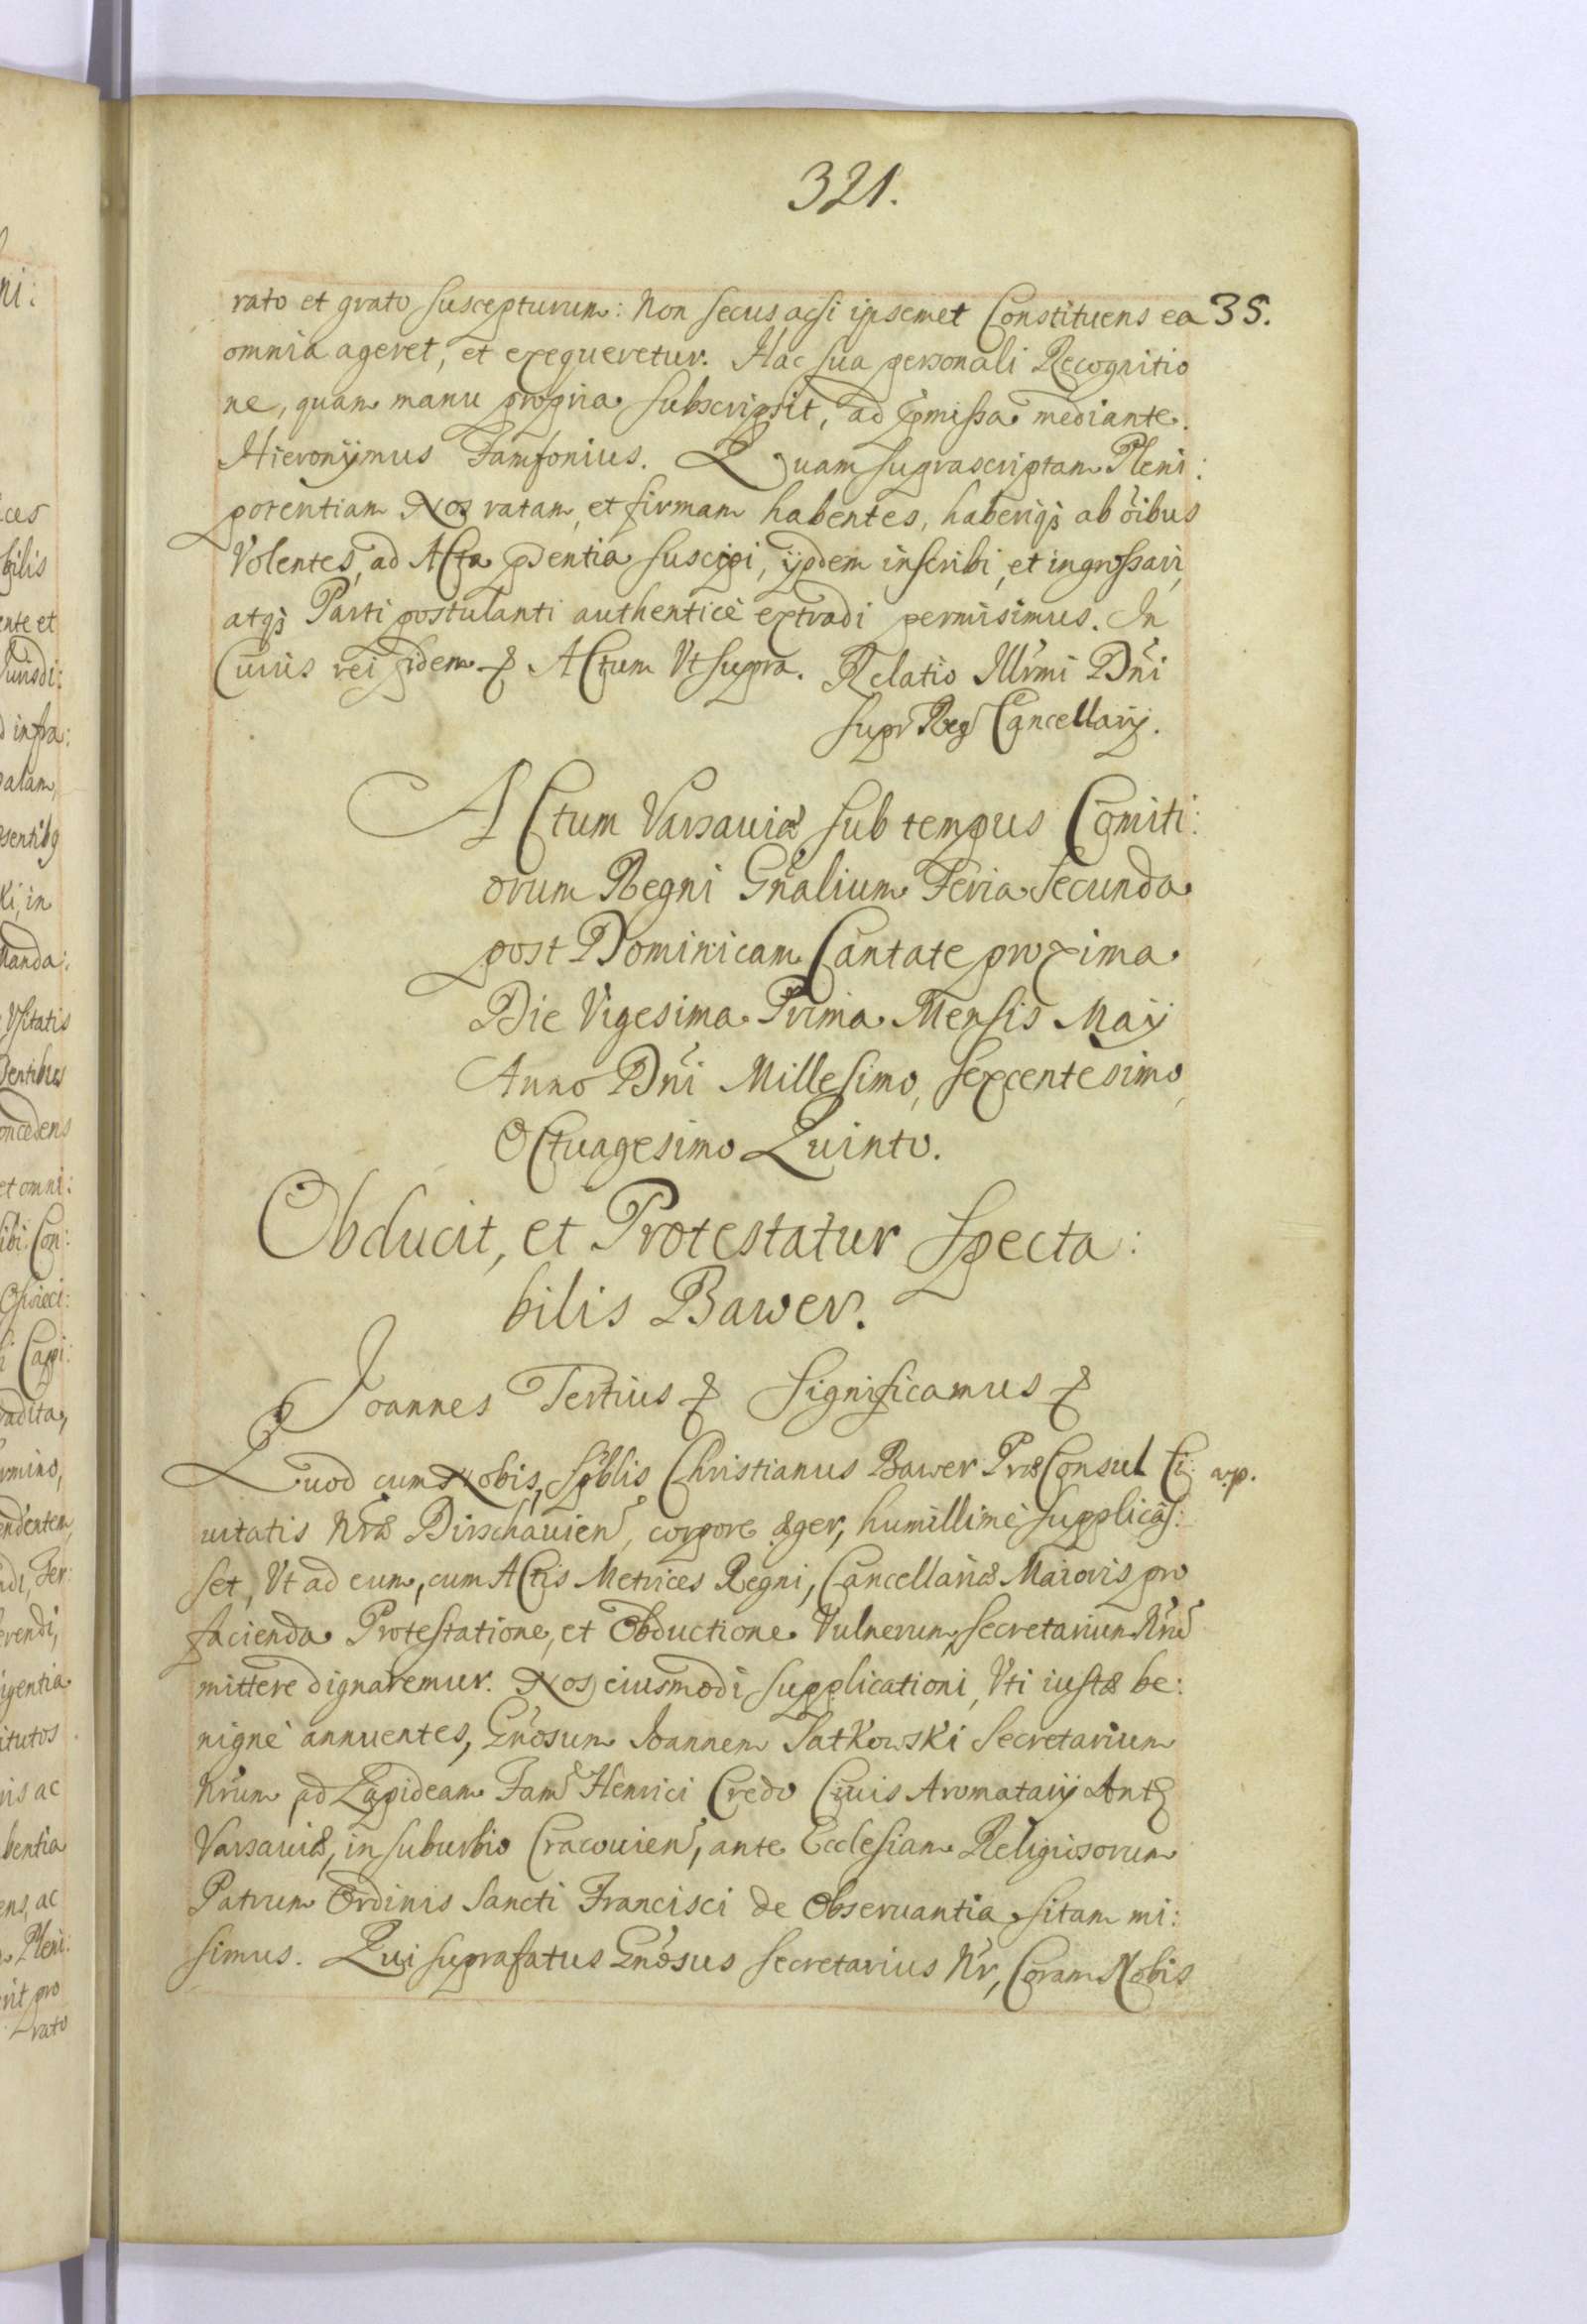 321.
rato et grato suscepturum: Non secus acsi ipsemet Constituens ea 35.
omnia ageret, et exequeretur. Hac sua personali Recognitio
ne, quam manu propria subscripsit, ad pmissa mediante.
Hieronymus Jamfonius. Quam suprascriptam Pleni:
potentiam Nos ratam, et firmam habentes, haberiq; ab oibus
Volentes, ad Acta pdentia suscipi, ijsdem inscribi, et ingrossari,
atq; Parti postulanti authenticè extradi permisimus. In
Cuius rei fidem & Actum Vt supra. Relatio Illrmi Dni
Supr Reg Cancellarij.
Actum Varsauiæ sub tempus Comiti:
orum Regni Gnalium Feria secunda
post Dominicam Cantate proxima
Die Vigesima Prima Mensis Maij
Anno Dni Millesimo, sexcentesimo,
Octuagesimo Quinto.
Obducit, et Protestatur Specta:
bilis Bawer.
Joannes Tertius & Significamus &
Quod cum Nobis, Spblis Christianus Bawer PræConsul Ci:
uitatis Nræ Dirschauien, corpore æger, humillimè supplicas:
set, Vt ad eum, cum Actis Metrices Regni, Cancellariæ Maioris pro
facienda Protestatione, et Obductione Vulnerum, secretarium Nrũ
mittere dignaremur. Nos eiusmodi supplicationi, Vti iustæ be:
nignè annuentes, Gnosum Joannem Jatkowski Secretarium
Nrum ad Lapideam Fam Henrici Credo Ciuis Aromatarij Antq
Varsauiæ, in suburbio Cracouien, ante Ecclesiam Religiosorum
Patrum Ordinis Sancti Francisci de Obseruantia sitam mi:
simus. Qui suprafatus Gnosus secretarius Nr, Coram Nobis